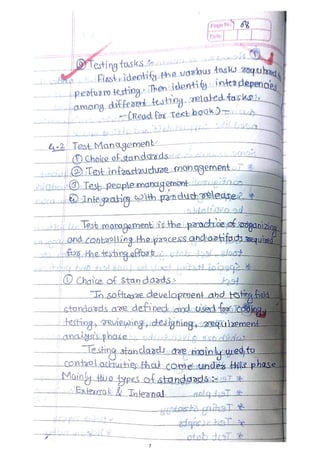 Page No. 68
Date
⑧ Testing tasks :-
First, identify the various tasks required
perform testing. Then identify interdepencies
among different testing related tasks.
-(Read for Text book)-
4.2 Test Management
① Choice of standards
② Test infrastructure management
③ Test people management
④ Integratig with product release
Test management is the practice of organizing
and controlling the process and artifacts required
for the testing effort
① Choice of standards:
In software development and testing field
standards are defined and used for coding,
testing, reviewing, designing, requirement
analysis phase
Testing standards are mainly used to
control activities that come under this phase
Mainly two types of standards :-
External & Internal